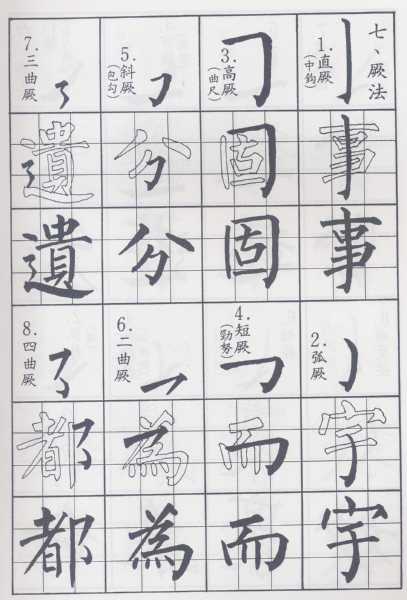 七、厥法
1.直厥
(中鈎)
事
事
2.弧厥
字
字
3.高厥
(曲尺)
固
固
4.短厥
(勁努)
而
而
5.斜厥
(包勾)
分
分
6.二曲厥
為
為
7.三曲厥
遺
遺
8.四曲厥
都
都